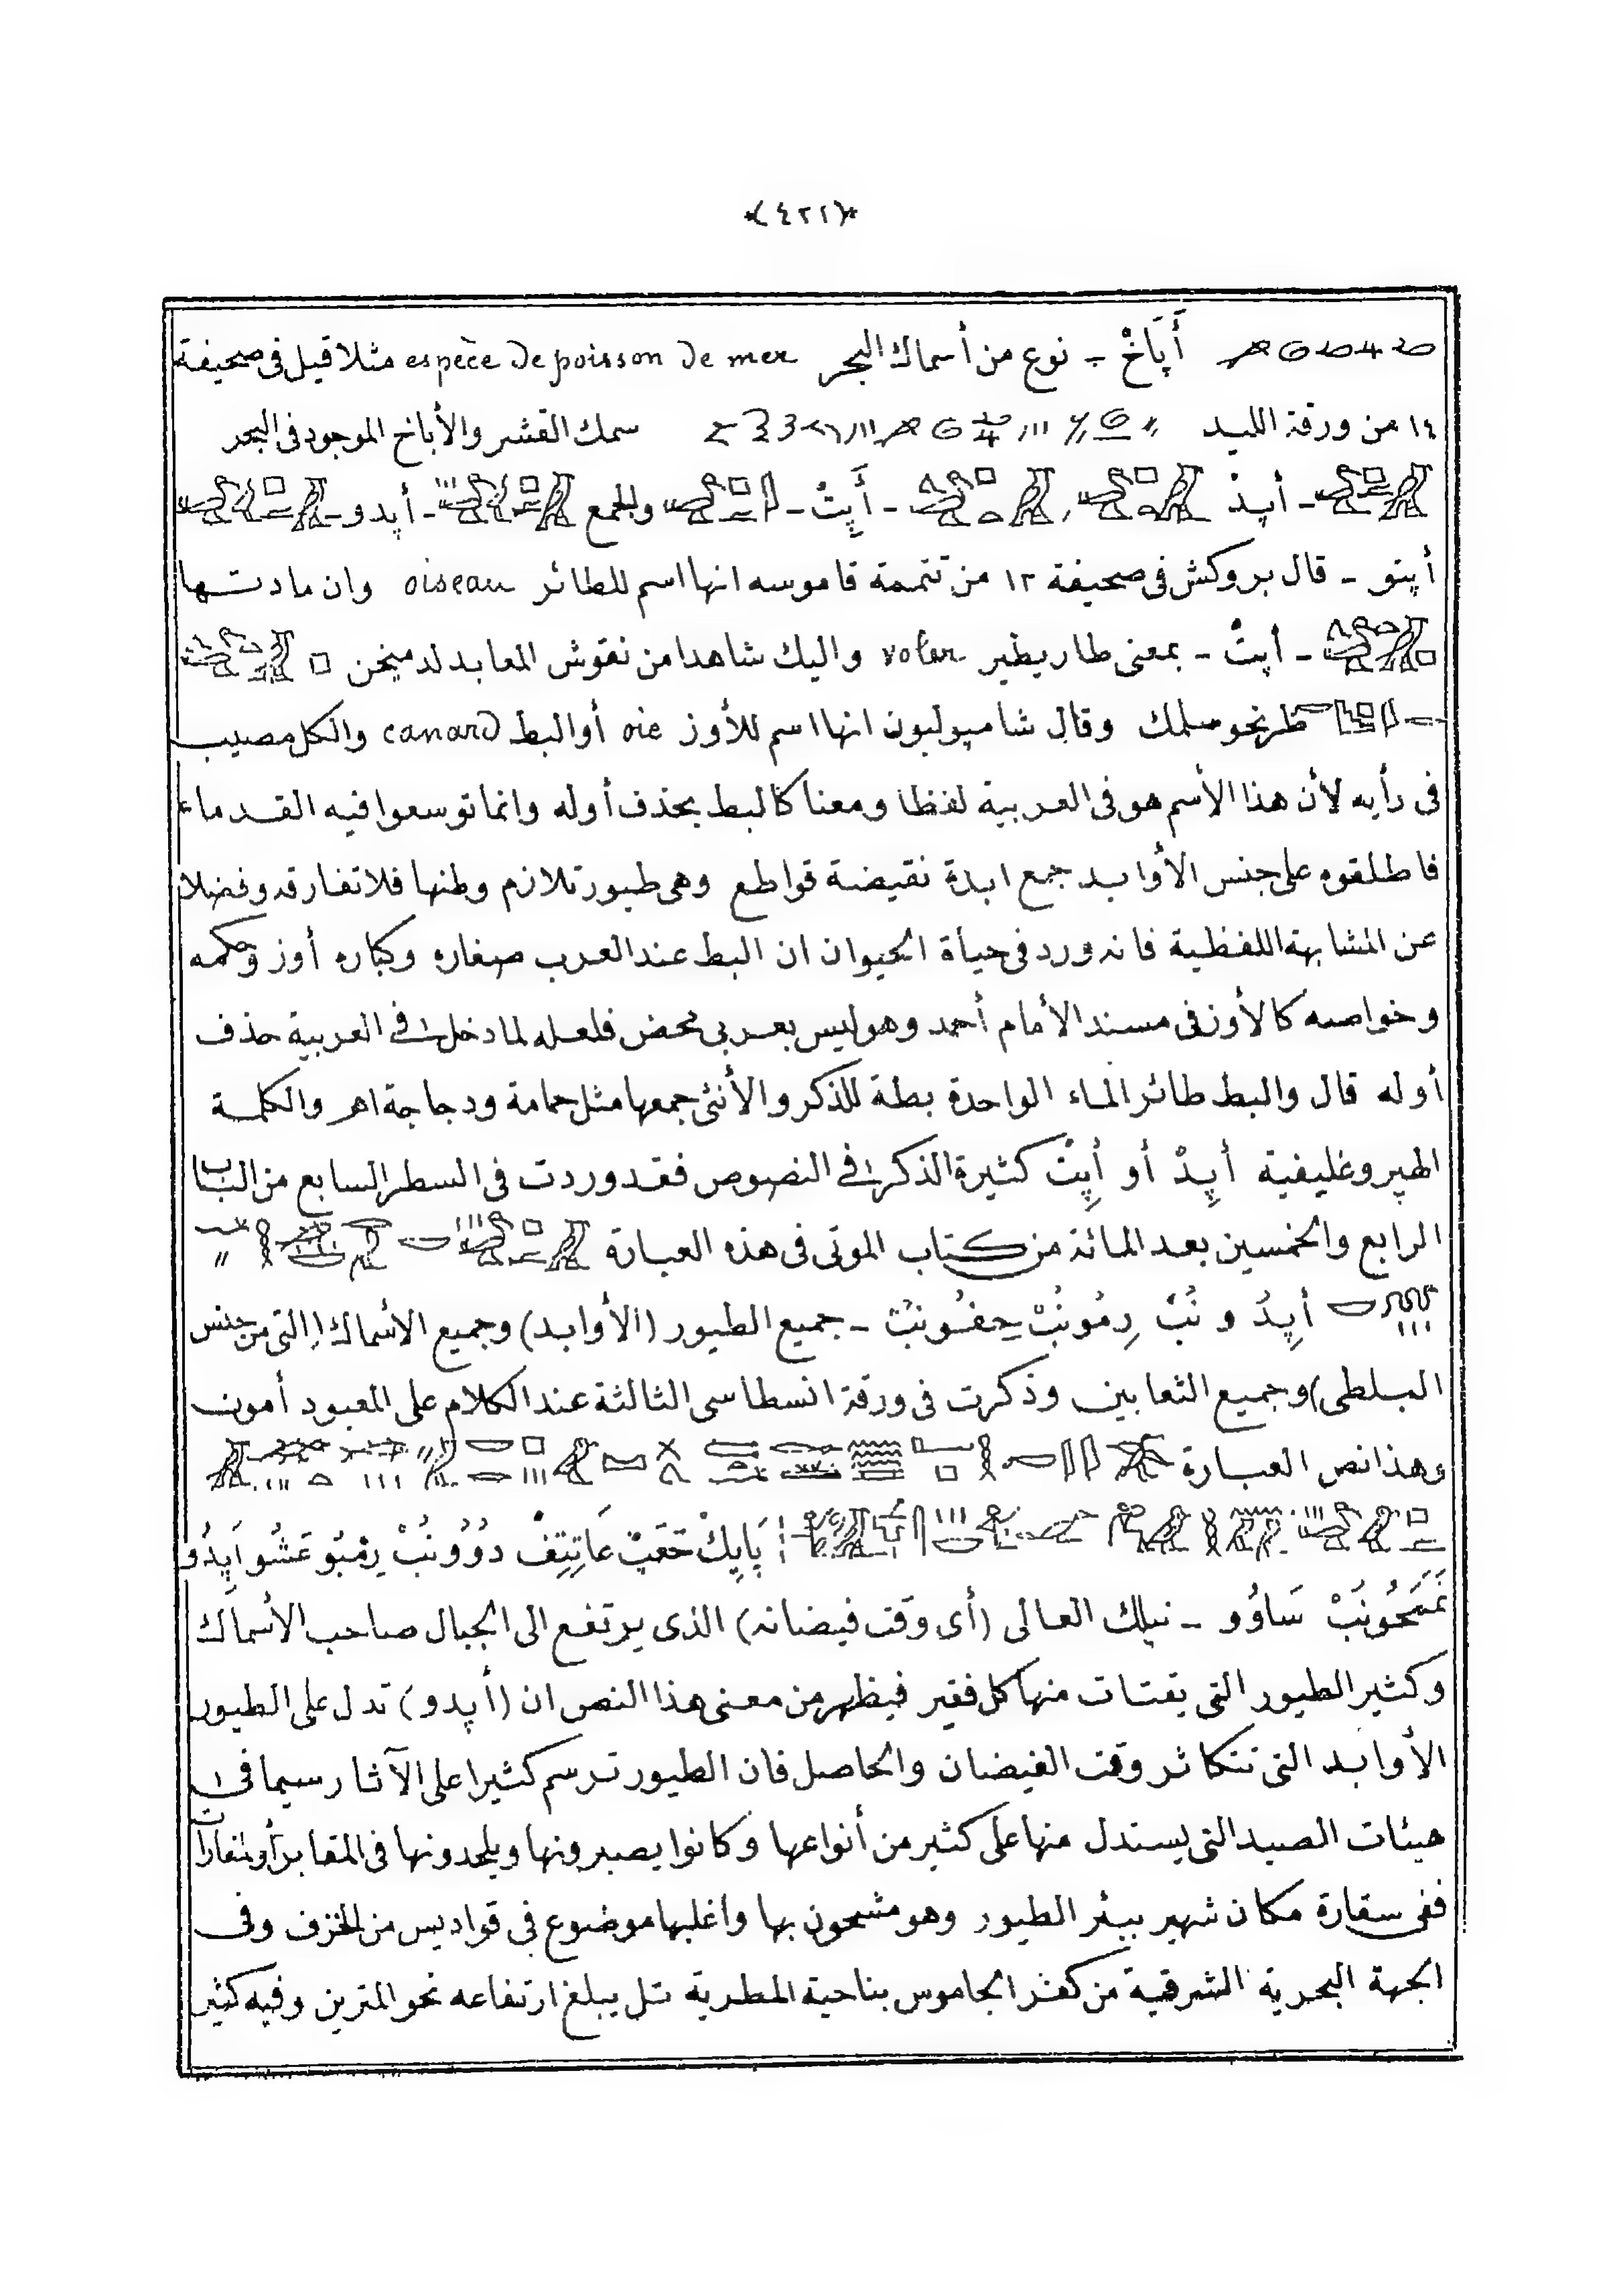 *(٤٢١)*
أَپَاخْ - نوع من أسماك البحر espèce de poisson de mer مثلا قيل فى صحيفة
١٤ من ورقة الليد سمك القشر والأباخ الموجود فى البحر
- أپدْ - أَپِتْ - والجمع - أپدو -
أپتو - قال بروكش فى صحيفة ١٢ من تتمة قاموسه انها اسم للطائر oiseau وان مادتها
- أپتْ - بمعنى طار يطير voler واليك شاهدا من نقوش المعابد لدميخن
طر نحو سلمك وقال شامپوليون انها اسم للأوز oie أو البط canard والكل مصيب
فى رأيه لأن هذا الأسم هو فى العربية لفظا ومعنا كالبط بحذف أوله وانما توسعوا فيه القدماء
فاطلقوه على جنس الأوابد جمع ابدة نقيضة قواطع وهى طيور تلازم وطنها فلا تفارقه وفضلا
عن المشابهة اللفظية فانه ورد فى حياة الحيوان ان البط عند العرب صغاره وكباره أوز وحكمه
وخواصه كالأوز فى مسند الأمام أحمد وهو ليس بعربى محض فلعله لما دخل فى العربية حذف
أوله قال والبط طائر الماء الواحدة بطة للذكر والأنثى جمعها مثل حمامة ودجاجة اهـ والكلمة
الهيروغليفية أپِدْ أو أپِتْ كثيرة الذكر فى النصوص فقد وردت فى السطر السابع من الباب
الرابع والخمسين بعد المائة من كتاب الموتى فى هذه العبارة
أپِدُ و نُبْ رِمُونُبْ حِفُونبْ - جميع الطيور (الأوابد) وجميع الأسماك (التى من جنس
البلطى) وجميع الثعابين وذكرت فى ورقة انسطاسى الثالثة عند الكلام على المعبود أمون
وهذا نص العبارة
پَاپِكْ حَعَپْ عَاتِتِفْ دُوُونُبْ رِمْبُو عَشُو اَپِدُو
نَمَحُونَبْ سَاوُو - نيلك العالى (أى وقت فيضانه) الذى يرتفع الى الجبال صاحب الأسماك
وكثير الطيور التى يقتات منها كل فقير فيظهر من معنى هذا النص ان (أپدو) تدل على الطيور
الأوابد التى تتكاثر وقت الفيضان والحاصل فان الطيور ترسم كثيرا على الآثار سيما فى
هيئات الصيد التى يستدل منها على كثير من أنواعها وكانوا يصبرونها ويلحدونها فى المقابر أو المغارات
ففى سقارة مكان شهير ببئر الطيور وهو مشحون بها واغلبها موضوع فى قواديس من الخزف وفى
الجهة البحرية الشرقية من كفر الجاموس بناحية المطرية تل يبلغ ارتفاعه نحو المترين وفيه كثير